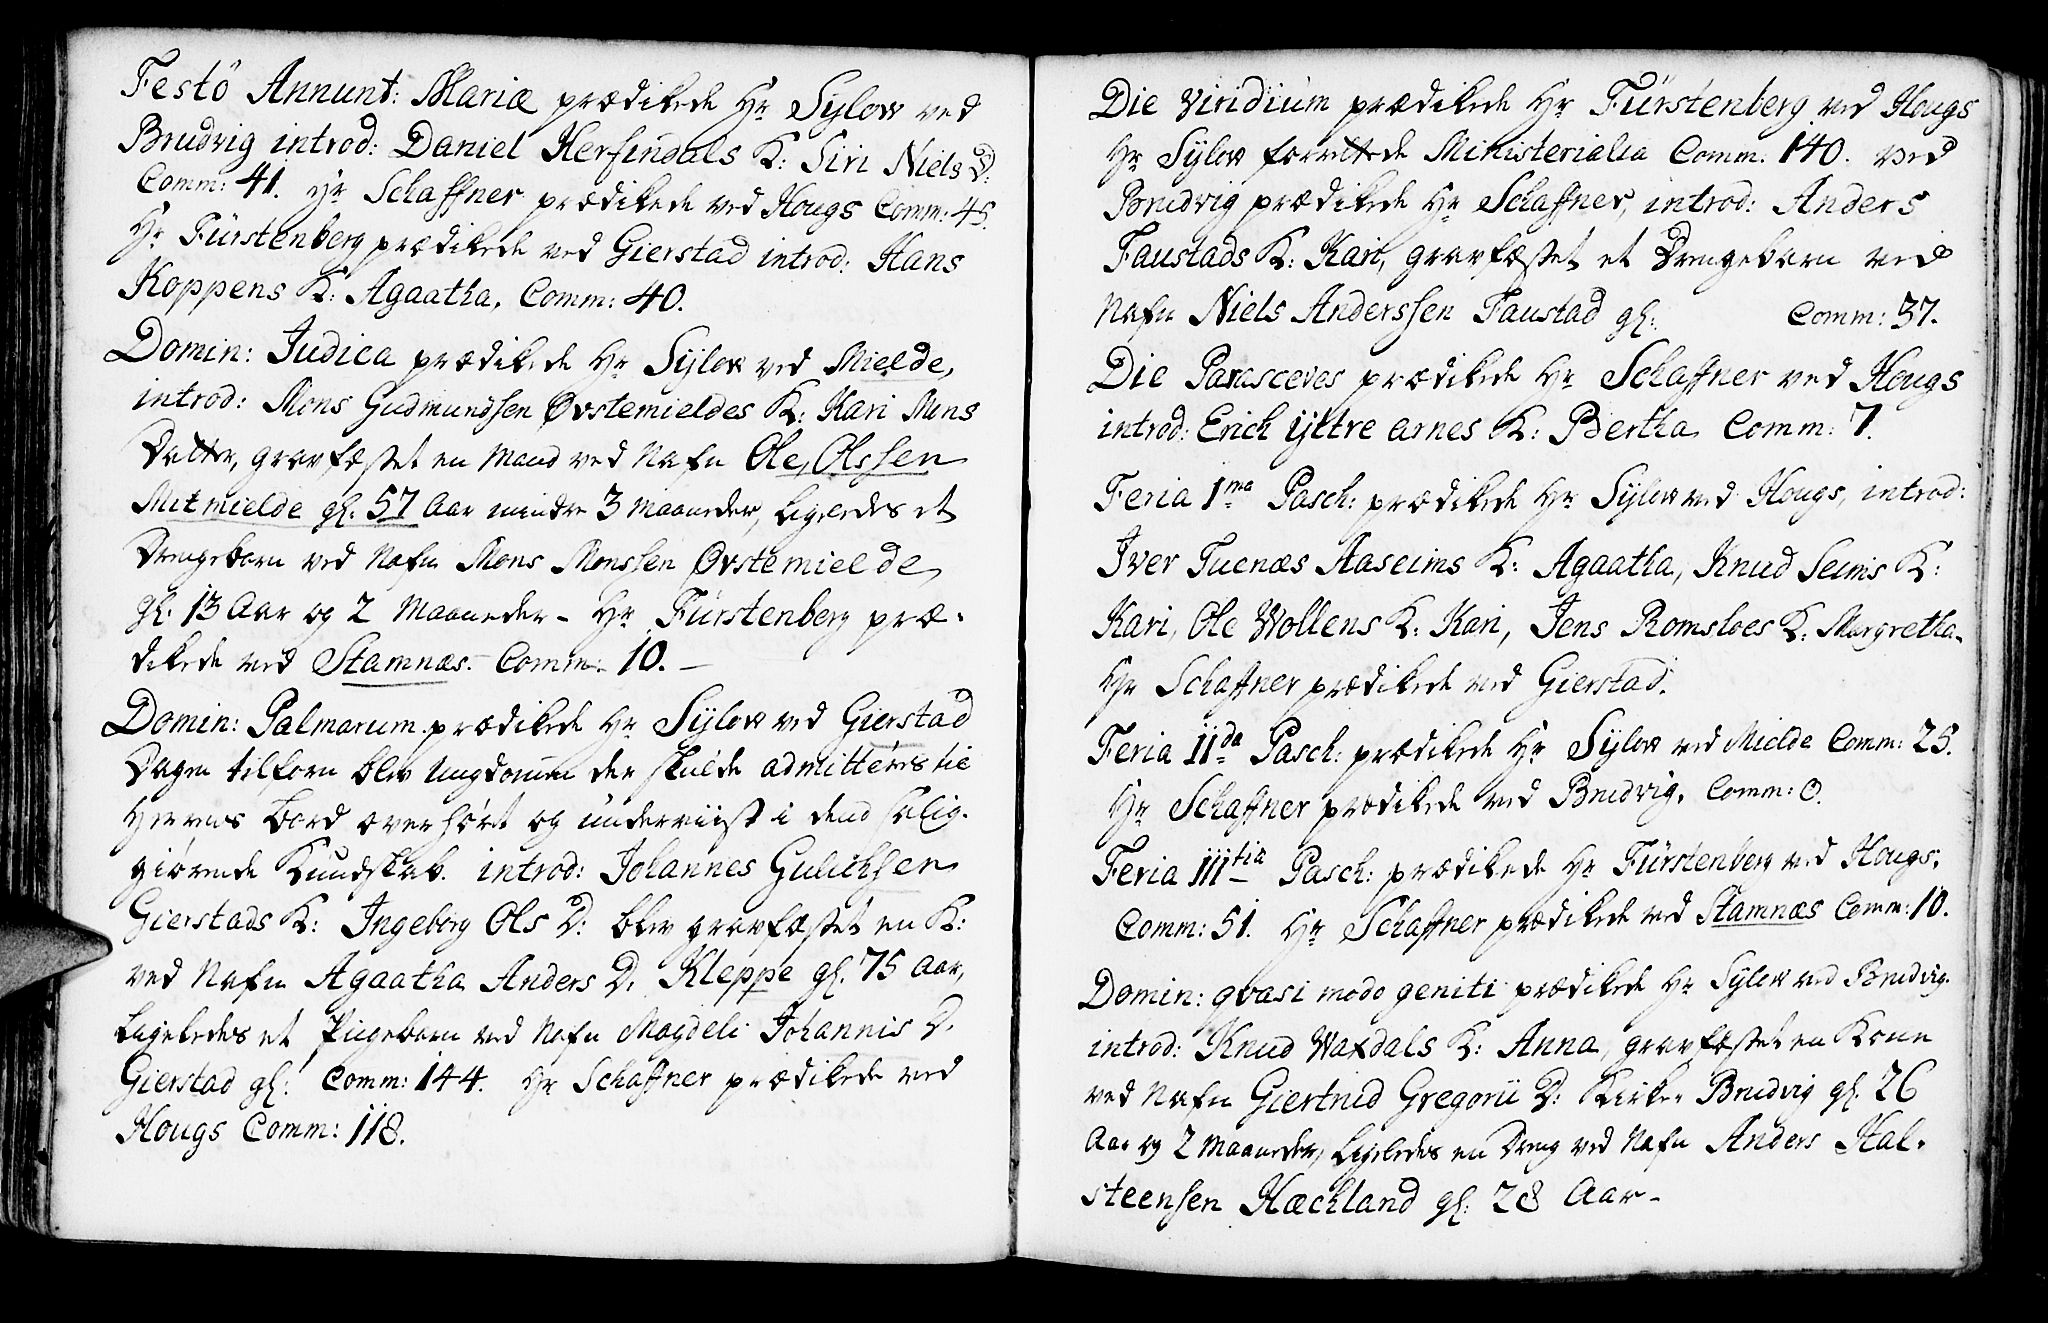 Festô Annunt: Mariæ prædikede Hr Sylow ved
Brudvig introd: Daniel Herfindals K: Siri Niels D:
Comm: 41. Hr Schaffner prædikede ved Hougs Comm: 45.
Hr Fürstenberg prædikede ved Gierstad introd: Hans
Koppens K: Agaatha, Comm: 40.
Domin: Judica prædikede Hr Sylow ved Mielde,
introd: Mons Gudmundsen Øvstemieldes K: Kari Mons
Datter, gravfæstet en Mand ved Nafn Ole Olssen
Mitmielde gl. 57 Aar mindre 3 Maaneder, ligeledes et
Drengebarn ved Nafn Mons Monssen Øvstemielde
gl. 13 Aar og 2 Maaneder - Hr Fürstenberg præ-
dikede ved Stamnæs. - Comm: 10. -
Domin: Palmarum prædikede Hr Sylow ved Gierstad
Dagen tilforn blev Ungdomen der skulde admitteris til
Herrens bord overhørt og underviist i dend salig-
giørende Kundskab. introd: Johannes Gulichsen
Gierstads K: Ingeborg Ols D: blev gravfæstet en K:
ved Nafn Agaatha Anders D. Kleppe gl. 75 Aar,
ligeledes et Pigebarn ved Nafn Magdeli Johannis D.
Gierstad gl: Comm: 144. Hr Schaffner prædikede ved
Hougs Comm: 118.
Die Viridium prædikede Hr Fürstenberg ved Hougs
Hr Sylow forrettede Ministerialia Comm: 140. ved
Brudvig prædikede Hr Schaffner, introd: Anders
Faustads K: Kari, gravfæstet et Drengebarn ved
Nafn Niels Anderssen Faustad gl: Comm: 37.
Die Parasceves prædikede Hr Schaffner ved Hougs
introd: Erich yttre arnes K: Bertha Comm: 7.
Feria 1ma Pasch: prædikede Hr Sylow ved Hougs, introd:
Iver Tuenæs Aaseims K: Agaatha, Knud Seims K:
Kari, Ole Wollens K: Kari, Jens Romsloes K: Margretha.
Hr Schaffner prædikede ved Gierstad.
Feria IIda Pasch: prædikede Hr Sylow ved Mielde Comm: 25.
Hr Schaffner prædikede ved Brudvig. Comm: 0.
Feria IIItia Pasch: prædikede Hr Fürstenberg ved Hougs,
Comm: 51. Hr Schaffner prædikede ved Stamnæs Comm: 10.
Domin: qvasi modo geniti prædikede Hr Sylow ved Brudvig.
introd: Knud Waxdals K: Anna, gravfæstet en Kone
ved Nafn Giertrud Gregorii D: Kirke Brudvig gl. 26
Aar og 2 Maaneder, ligeledes en Dreng ved Nafn Anders Hal-
steensen Hæckland gl: 28 Aar -